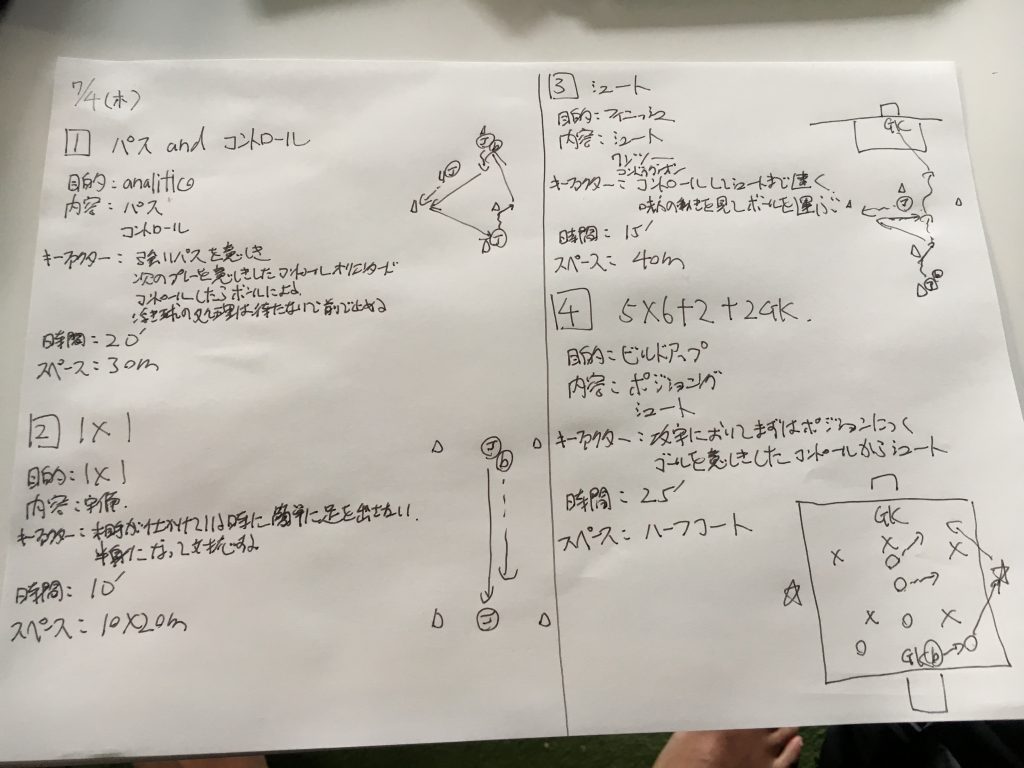 7/4(水)
1 パス and コントロール
目的:analitico
内容:パス
コントロール
キーファクター:強いパスを意しき
次のプレーを意しきしたコントロールオリエンタード
コントロールしたらボールによる
浮き球の処理は待たないで前で止める
時間:20′
スペース:30m
2 1×1
目的:1×1
内容:守備
キーファクター:相手が仕かけている時に簡単に足を出さない.
半身になって対応する
時間:10′
スペース:10×20m
3 シュート
目的:フィニッシュ
内容:シュート
ワンツー
キーファクター:コントロールしてシュートまで速く
味方の動きを見てボールを運ぶ
時間:15′
スペース:40m
4 5×6+2+2GK.
目的:ビルドアップ
内容:ポジショニング
シュート
キーファクター:攻守においてまずはポジションにつく
ゴールを意しきしたコントロールからシュート
時間:25′
スペース:ハーフコート
GK
GK
GK b
b